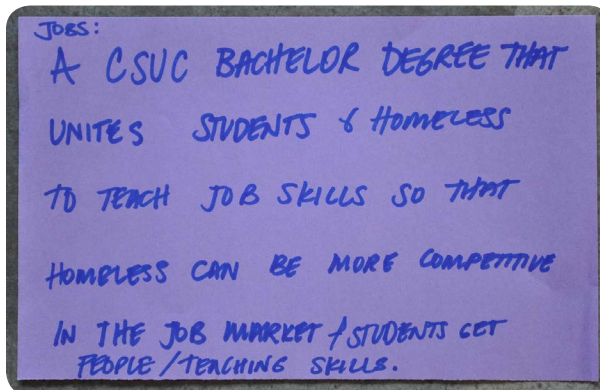 JOBS:
A CSUC BACHELOR DEGREE THAT
UNITES STUDENTS & HOMELESS
TO TEACH JOB SKILLS SO THAT
HOMELESS CAN BE MORE COMPETITIVE
IN THE JOB MARKET & STUDENTS GET
PEOPLE/TEACHING SKILLS.